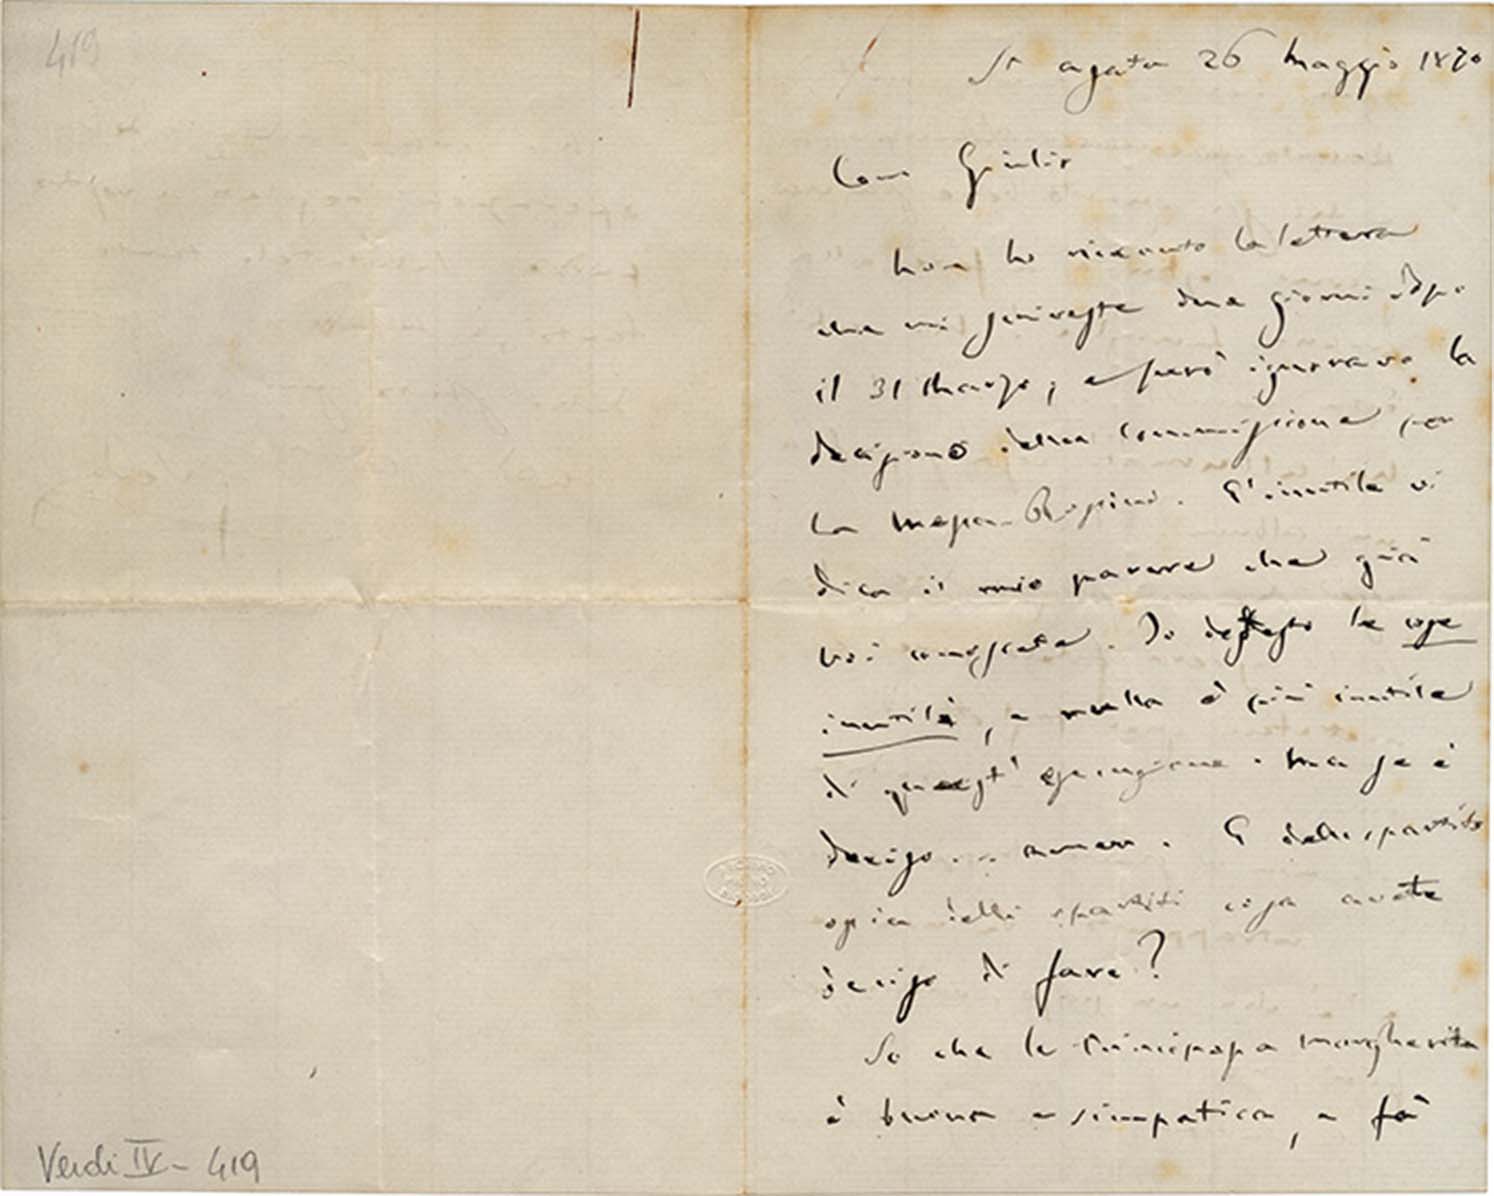 419
St Agata 26 Maggio 1870
Caro Giulio
Non ho ricevuto la lettera
che mi scriveste due giorni dopo
il 31 Marzo; e però ignoravo la
decisione della Commissione per
la Messa-Rossini. E' inutile vi
dica il mio parere che già
voi conoscete. Io detesto le cose
inutili, e nulla è più inutile
di quest' esecuzione. Ma se è
deciso... amen. E delli spartiti
opia delli spartiti cosa avete
deciso di fare?
So che la Principessa Margherita
è buona e simpatica, e fà
Verdi IV - 419